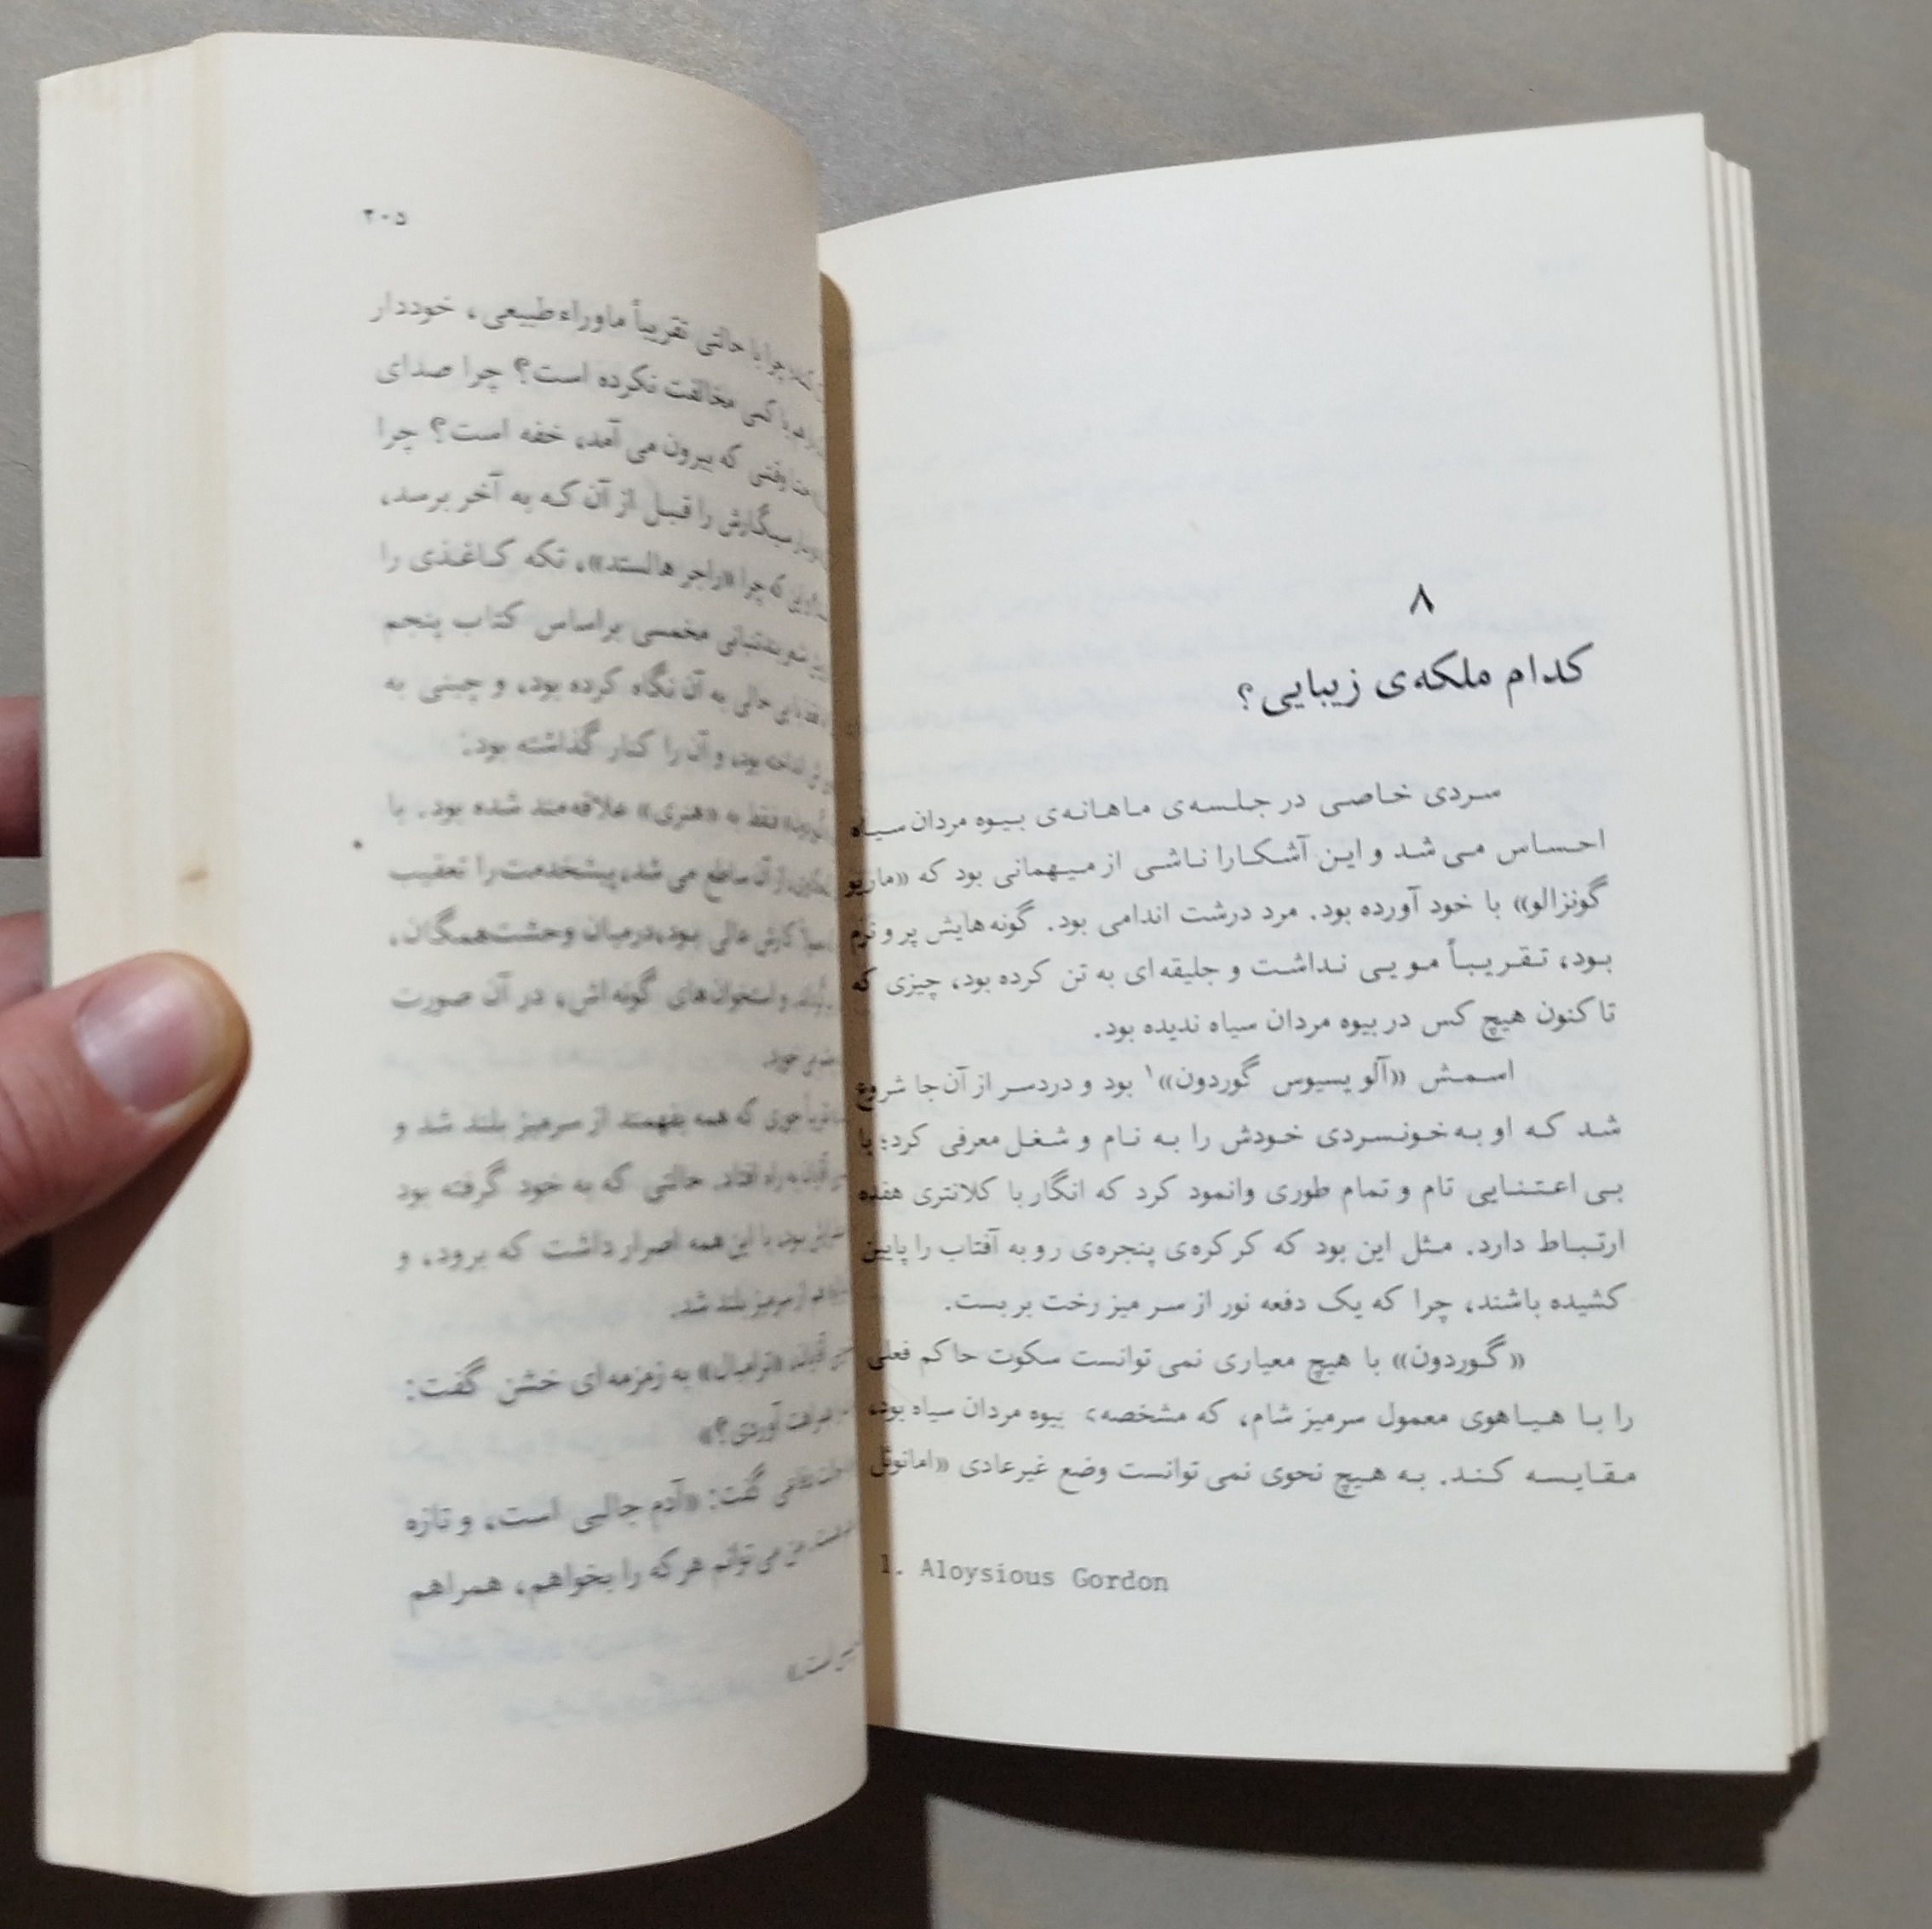 ۸
کدام ملکه‌ی زیبایی؟
سردی خاصی در جلسه‌ی ماهانه‌ی بیوه مردان سیاه
احساس می شد و این آشکارا ناشی از میهمانی بود که «ماریو
گونزالو» با خود آورده بود. مرد درشت اندامی بود. گونه هایش پر و نرم
بود، تقریباً مویی نداشت و جلیقه ای به تن کرده بود، چیزی که
تا کنون هیچ کس در بیوه مردان سیاه ندیده بود.
اسمش «آلویسیوس گوردون»۱ بود و دردسر از آن جا شروع
شد که او به خونسردی خودش را به نام و شغل معرفی کرد؛ با
بی اعتنایی تام و تمام طوری وانمود کرد که انگار با کلانتری هفده
ارتباط دارد. مثل این بود که کرکره‌ی پنجره‌ی رو به آفتاب را پایین
کشیده باشند، چرا که یک دفعه نور از سر میز رخت بر بست.
«گوردون» با هیچ معیاری نمی توانست سکوت حاکم فعلی
را با هیاهوی معمول سرمیز شام، که مشخصه‌ی بیوه مردان سیاه بود،
مقایسه کند. به هیچ نحوی نمی توانست وضع غیرعادی «امانوئل
1. Aloysious Gordon
۲۰۵
چرا با حالتی تقریباً ماوراءطبیعی، خوددار
با کسی مخالفت نکرده است؟ چرا صدای
وقتی که بیرون می آمد، خفه است؟ چرا
سیگارش را قبل از آن که به آخر برسد،
که چرا «راجر هالستد»، تکه کاغذی را
مخمسی براساس کتاب پنجم
حالی به آن نگاه کرده بود، و چینی به
انداخته بود، و آن را کنار گذاشته بود.
فقط به «هنری» علاقه مند شده بود. با
از آن ساطع می شد، پیشخدمت را تعقیب
کارش عالی بود، درمیان وحشت همگان،
و استخوان های گونه اش، در آن صورت
می خورد.
که همه بفهمند از سرمیز بلند شد و
به راه افتاد. حالتی که به خود گرفته بود
بود، با این همه اصرار داشت که برود. و
از سرمیز بلند شد.
«ترامبال» به زمزمه ای خشن گفت:
آوردی؟»
گفت: «آدم جالبی است، و تازه
من می توانم هر که را بخواهم، همراهم
است.»